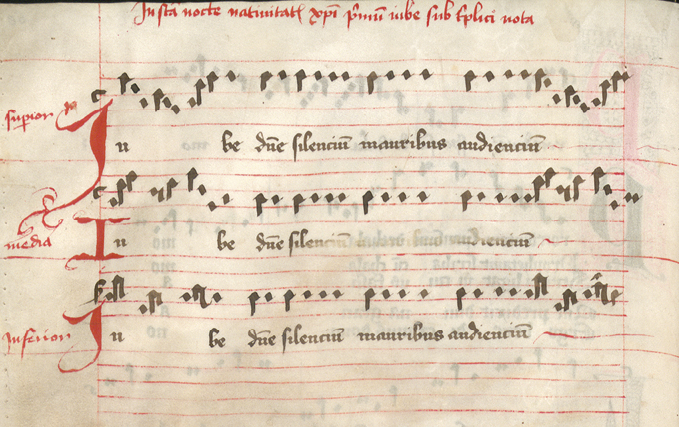 In sca nocte nativitat xpi pmu iube sub tplici nota
supior
Iu be dne silenciu in auribus audienciu
media
Iu be dne silenciu audienciu
inferior
Iu be dne silenciu in auribus audienciu